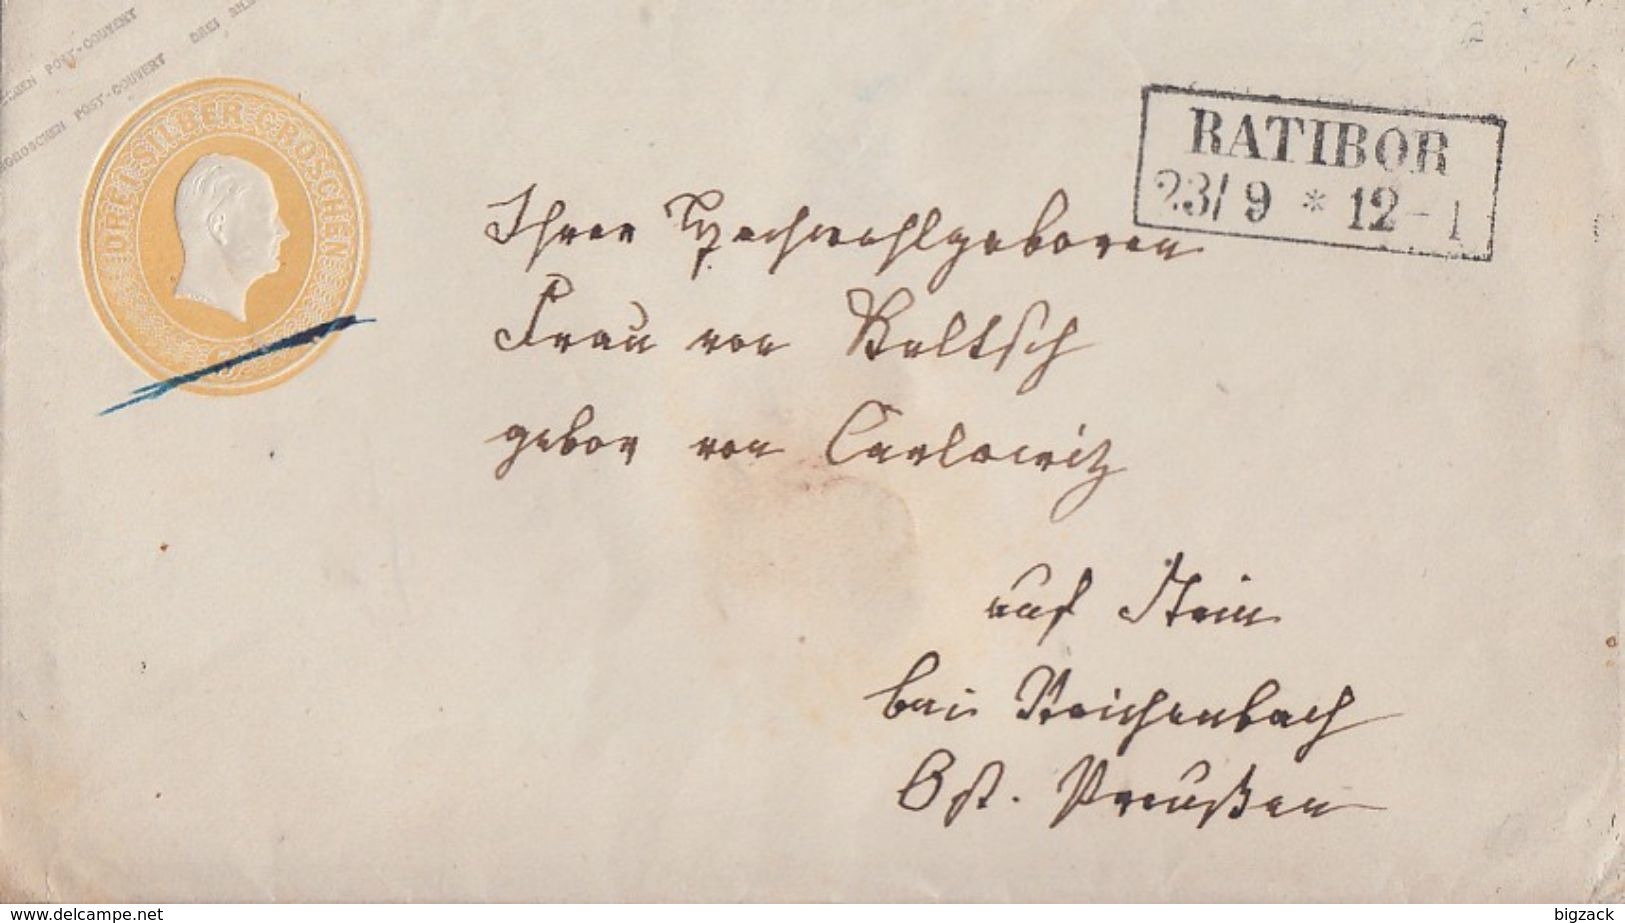 POST-COUVERT
GROSCHEN POST-COUVERT DREI SIL
DREI SILBER GROSCHEN
3
RATIBOR
23/9 * 12-1
Ihrer Hochwohlgeboren
Frau von Beltsch
gebor von Carlowitz
auf Stein
bei Reichenbach
Ost. Preußen
www.delcampe.net
bigzack